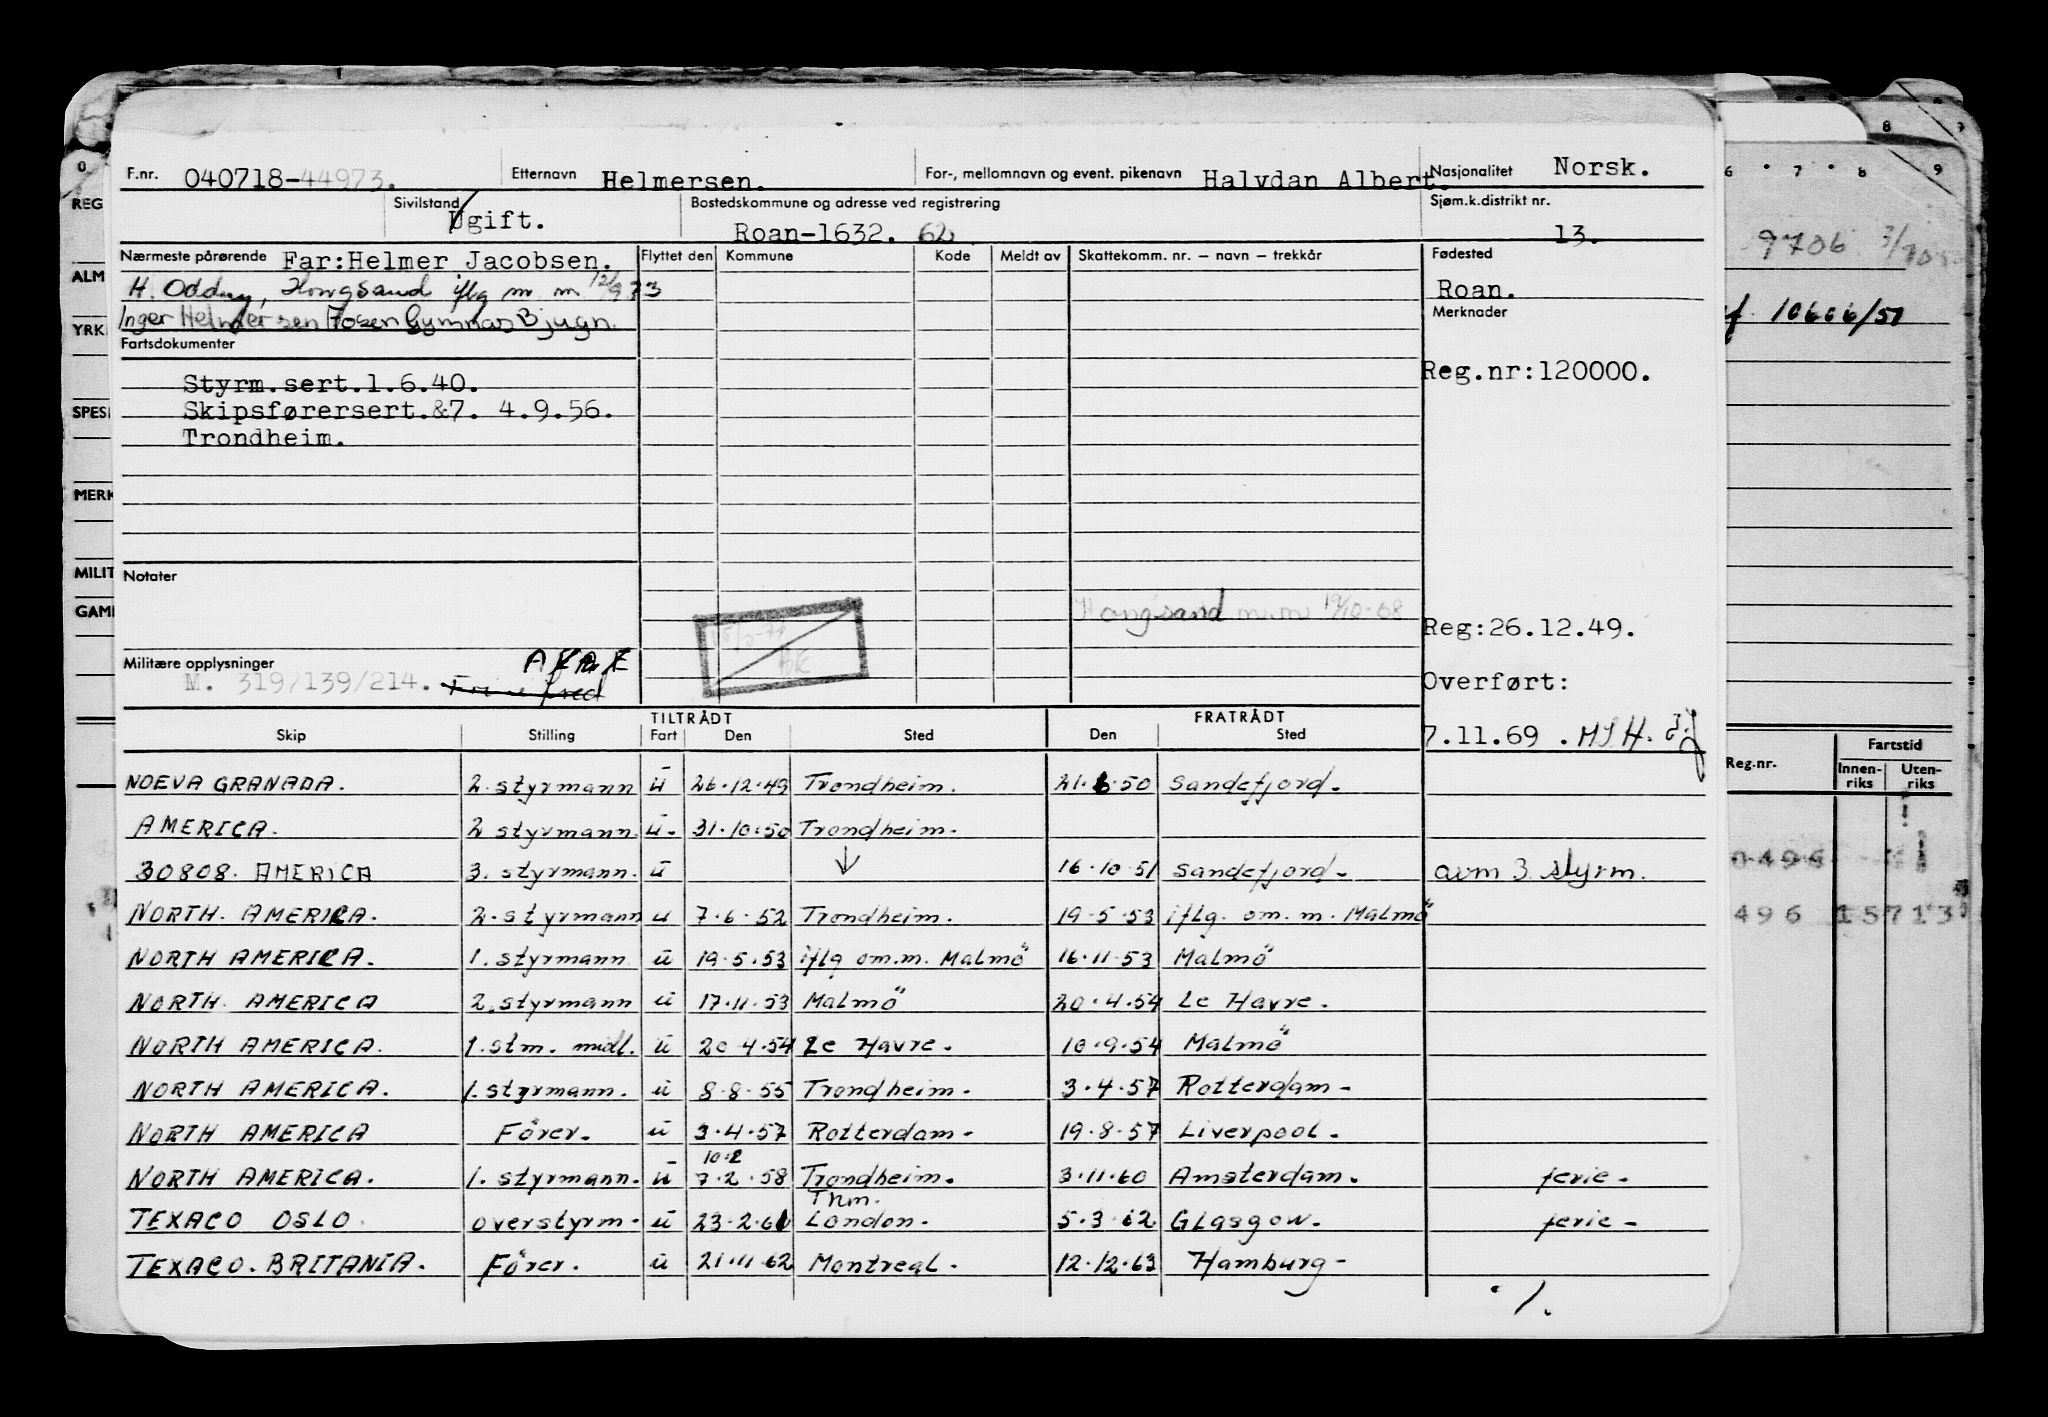 F.nr. 040718-44973. Etternavn Helmersen. For-, mellomnavn og event. pikenavn Halvdan Albert. Nasjonalitet Norsk.
Sivilstand Ugift. Bostedskommune og adresse ved registrering Roan-1632. 62 Sjøm.k.distrikt nr. 13.
Nærmeste pårørende Far:Helmer Jacobsen. Flyttet den Kommune Kode Meldt av Skattekomm. nr. – navn – trekkår Fødested
H. Oddny, Hongsand iflg m.m 12/9 73 Roan.
Inger Helmersen Fosen Gymnas Bjugn. Merknader
Fartsdokumenter
Styrm.sert.1.6.40. Reg.nr:120000.
Skipsførersert.&7. 4.9.56.
Trondheim.
Notater
Hongsand m.m 19/10-68
Reg:26.12.49.
Militære opplysninger
M. 319/139/214. Overført:
7.11.69 .
TILTRÅDT FRATRÅDT
Skip Stilling Fart Den Sted Den Sted
NOEVA GRANADA. 2. styrmann u 26.12.49 Trondheim. 21.6.50 Sandefjord.
AMERICA. 2 styrmann u. 31.10.50 Trondheim.
30808. AMERICA 3. styrmann. u ↓ 16.10.51 Sandefjord. avm 3 styrm.
NORTH. AMERICA. 2. styrmann u 7.6.52 Trondheim. 19.5.53 iflg. om.m. Malmö
NORTH AMERICA. 1. styrmann u 19.5.53 iflg om.m. Malmö 16.11.53 Malmö
NORTH. AMERICA 2. styrmann u 17.11.53 Malmö 20.4.54 Le Havre.
NORTH AMERICA. 1. stm. midl. u 20 4.54 Le Havre. 10.9.54 Malmö
NORTH AMERICA. 1. styrmann. u 8.8.55 Trondheim. 3.4.57 Rotterdam-
NORTH AMERICA Förer. u 3.4.57 Rotterdam- 19.8.57 Liverpool.
10.2
NORTH AMERICA. 1. styrmann. u 7.2.58 Trondheim. 3.11.60 Amsterdam. ferie.
Thm.
TEXACO OSLO. overstyrm. u 23.2.61 London. 5.3.62 Glasgow. ferie-
TEXACO. BRITANIA. Förer. u 21.11.62 Montreal. 12.12.63 Hamburg-
./.
0
REG
ALM
YRK
SPES
MERK
MILIT
GAM
8
6 7 8 9
9706
10606/51
Fartstid
Reg.nr. Innen-riks Uten-riks
0496
496 15713